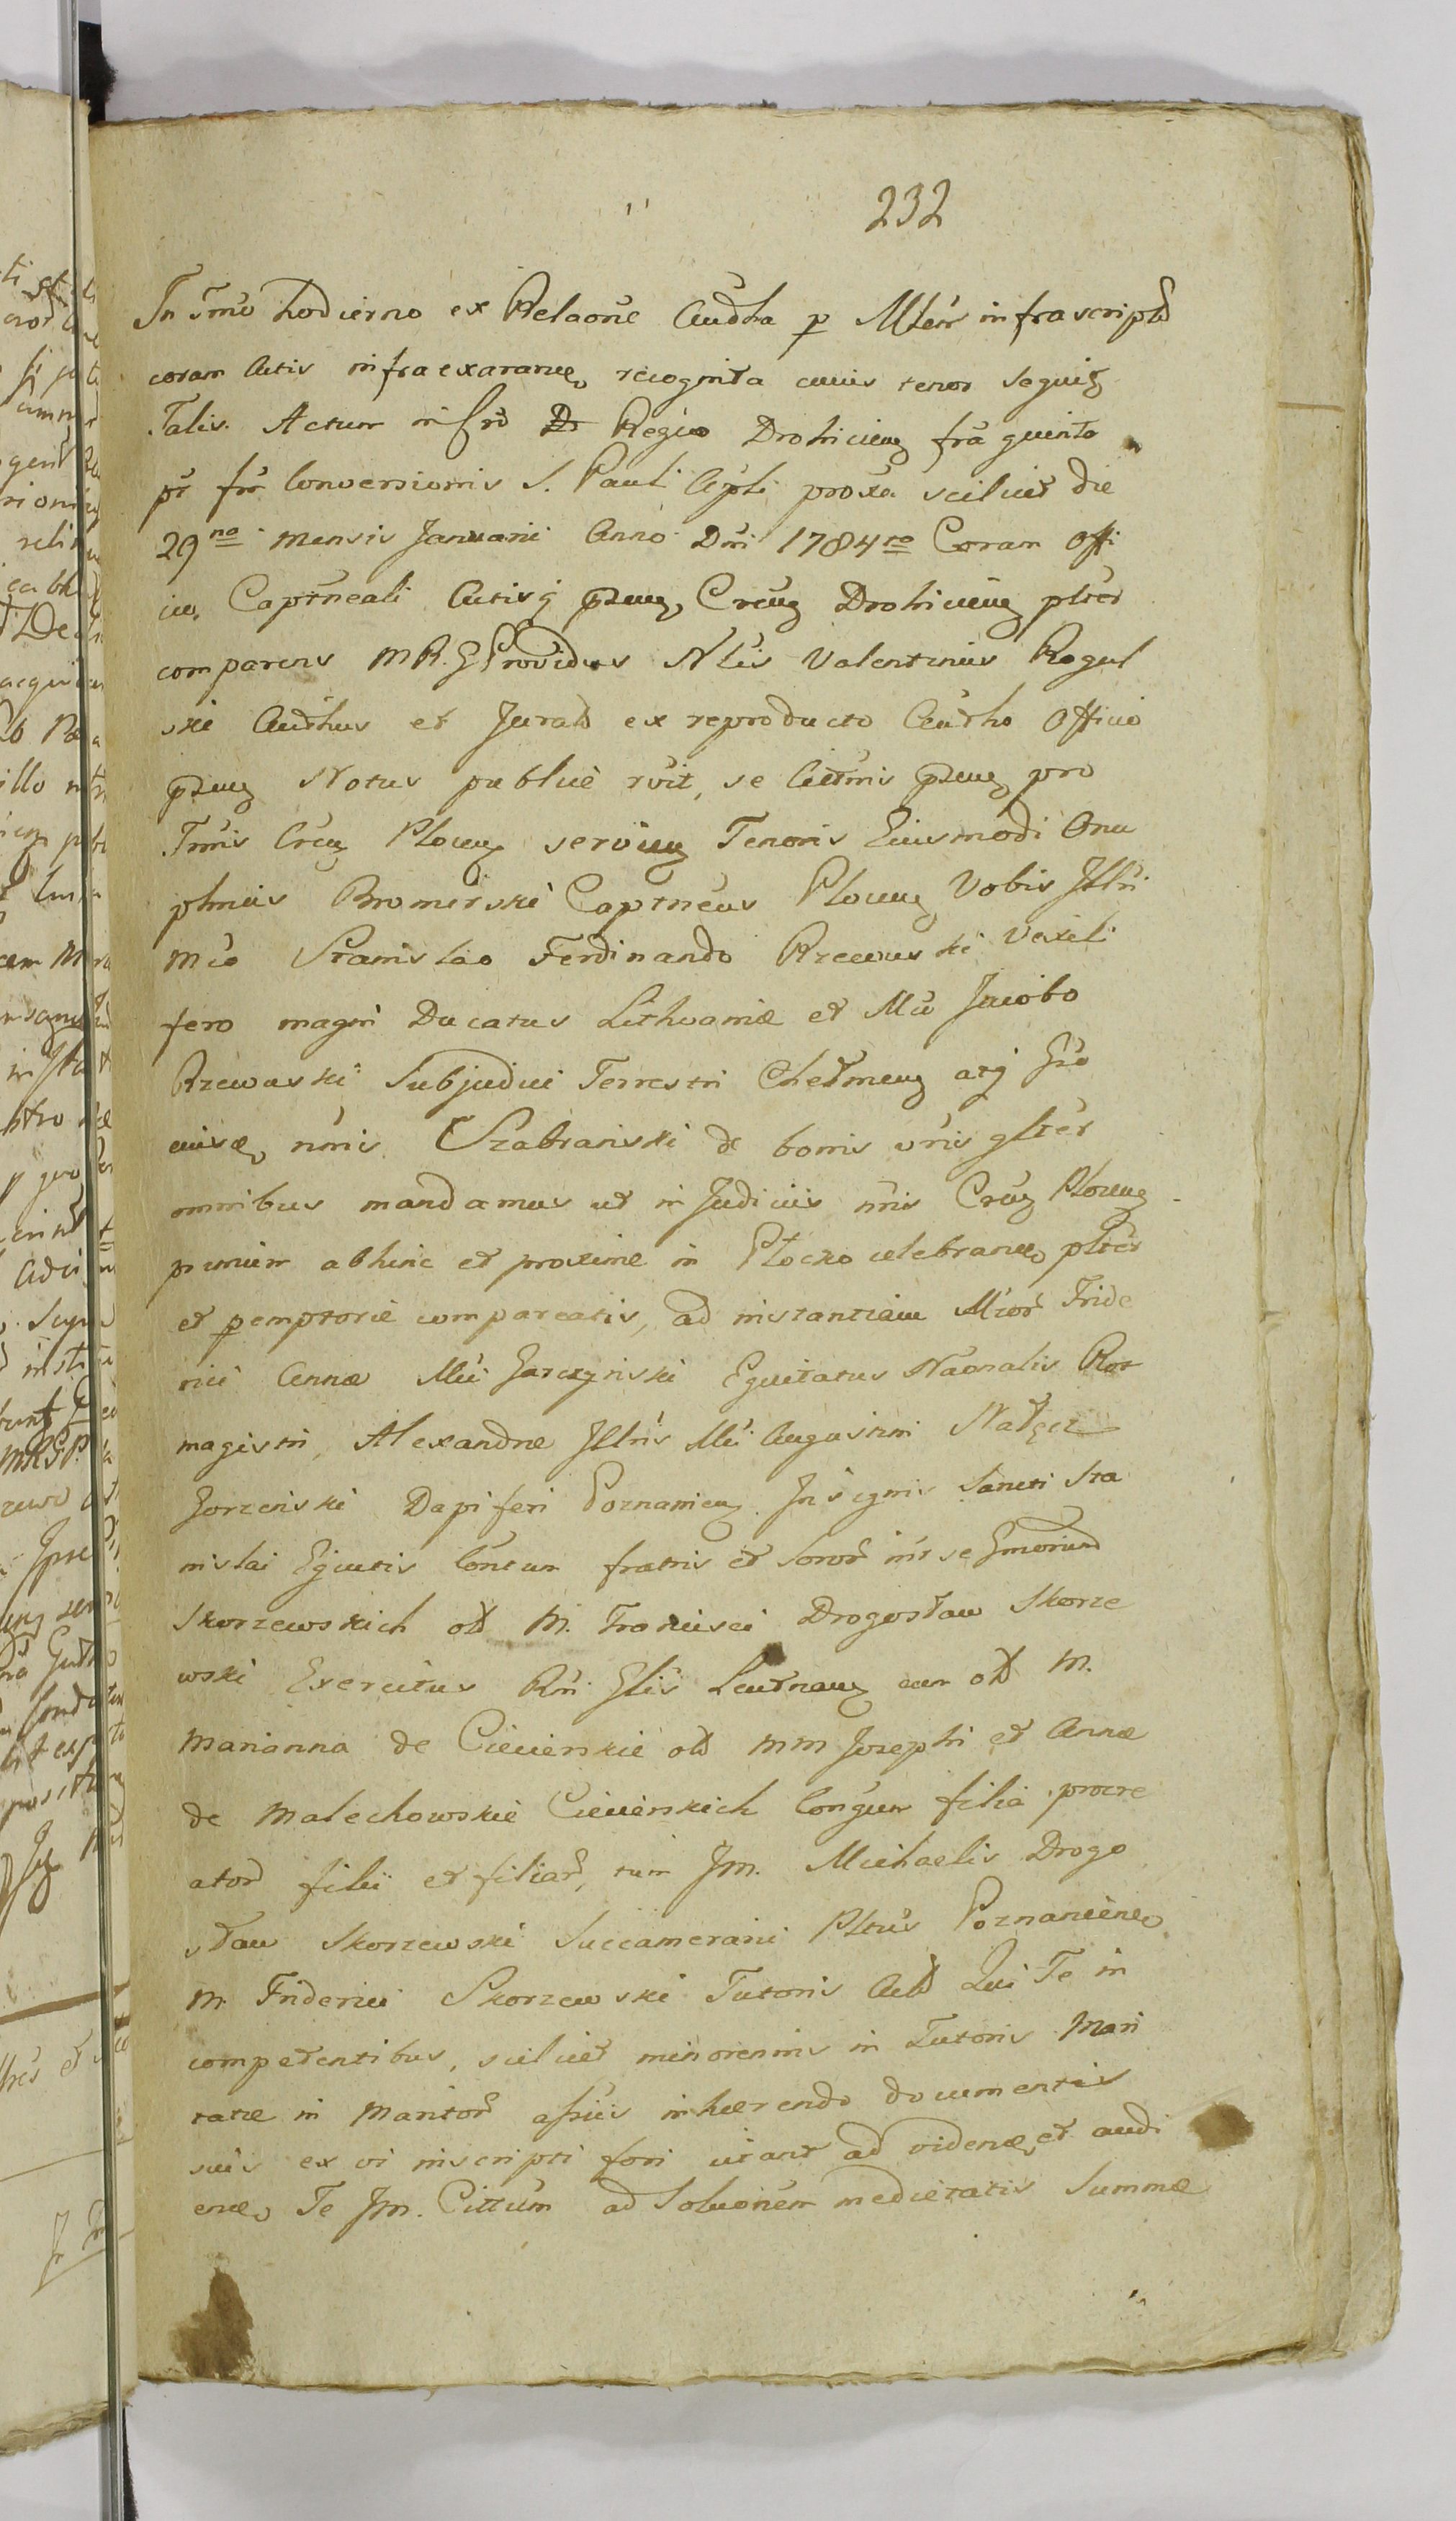 232
In Tmno hodierno ex Relaone Authca p Mtem infrascriptd
coram Actis infraexarane recognita cuius tenor seguitz
Talis. Actum in Cro Dr Regio Drohicienz fra quinta
pt ftr Conversionis S. Pauli Apli proxa scilicet die
29no mensis Januarii Anno Dni 1784ro Coram Offi
cio Captneali Actisq pzenz Crenz Drohicienz pltter
comparens MR. G Providus Ntlis Valentinus Rogul
ski Authus et Jurats ex reproducto Authco Officio
pzenz Notus publice rvit, se litteris pzenz pro
Tmis Crenz Plocenz servienz Tenoris Eiusmodi Onu
phrius Bromirski Captneus Plocenz Vobis Jlltri
Mco Stanislao Ferdinando Rzewuski Vexili
fero magni Ducatus Lithvaniæ et Mco Jacobo
Rzewuski Subjudici Terrestri Chełmenz atq Gso
nnis Szabrański de bonis vris glter
omnibus mandamus ut in Judiciis nris Crenz Plocenz
primum abhinc et proxime in Płocko celebrane pltter
et pemptorie compareatis, ad instantiam Mcor Fride
rici Annæ Mci Garczyński Eguitatus Naonalis Rot
magistri, Alexandræ Jlltris Mci Augustini Nałęcz
Gorzeński Dapiferi Poznanienz Insignis Sancti Sta
nislai Eguitis Contum fratris et Soror intr se Gmorund
Skorzewskich old M. Francisci Drogosław Skorze
wski Exercitus Rni Glis Leutnanz cum old M.
Marianna de Ciecierskie old MM Josephi et Annæ
de Malechowskie Ciecierskich Congum filia procre
ator filii et filiar, tum JM. Michaelis Drogo
sław Skorzewski Succamerarii Pltus Poznaniene
M. Friderici Skorzewski Tutoris Actd Qui Te in
competentibus, scilicet minorennis in Tutoris Mari
tatæ in Maritor assiis inhærendo documentis
suis ex vi inscripti fori citant ad videne et audi
ene Te JM. Cittum ad Soluonem medietatis Summæ